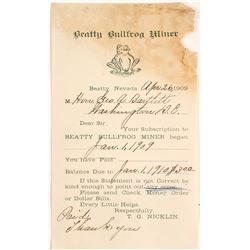 Beatty Bullfrog Miner
Beatty, Nevada Apr 26 1909
M Hon. Geo. A. Bartlett
Washington D.C.
Dear Sir:
Your Subscription to
BEATTY BULLFROG MINER began
Jan. 1, 1909
And Paid
Balance Due to Jan. 1, 1910, $3.00
If this Statement is not Correct by
kind enough to point out any error.
Please send Check, Money Order
or Dollar Bills.
Every Little Helps
Respectfully,
T. G. NICKLIN.
Paid
Thank you